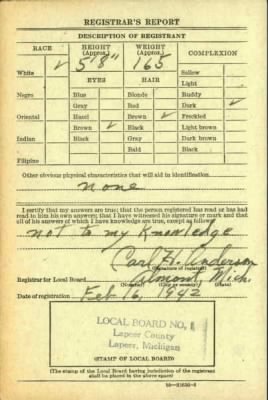 REGISTRAR'S REPORT
DESCRIPTION OF REGISTRANT
RACE HEIGHT (Approx.) WEIGHT (Approx.) COMPLEXION
White ✓ 5'8" 165 Sallow
EYES HAIR Light
Negro Blue Blonde Ruddy
Gray Red Dark ✓
Oriental Hazel Brown ✓ Freckled
Brown ✓ Black Light brown
Indian Black Gray Dark brown
Bald Black
Filipino
Other obvious physical characteristics that will aid in identification
none
I certify that my answers are true; that the person registered has read or has had
read to him his own answers; that I have witnessed his signature or mark and that
all of his answers of which I have knowledge are true, except as follows:
not to my Knowledge
Carl H. Anderson
(Signature of registrar)
Registrar for Local Board Almont Mich.
(Number) (City or county) (State)
Date of registration Feb 16, 1942
LOCAL BOARD NO. 1
Lapeer County
Lapeer, Michigan
(STAMP OF LOCAL BOARD)
(The stamp of the Local Board having jurisdiction of the registrant
shall be placed in the above space)